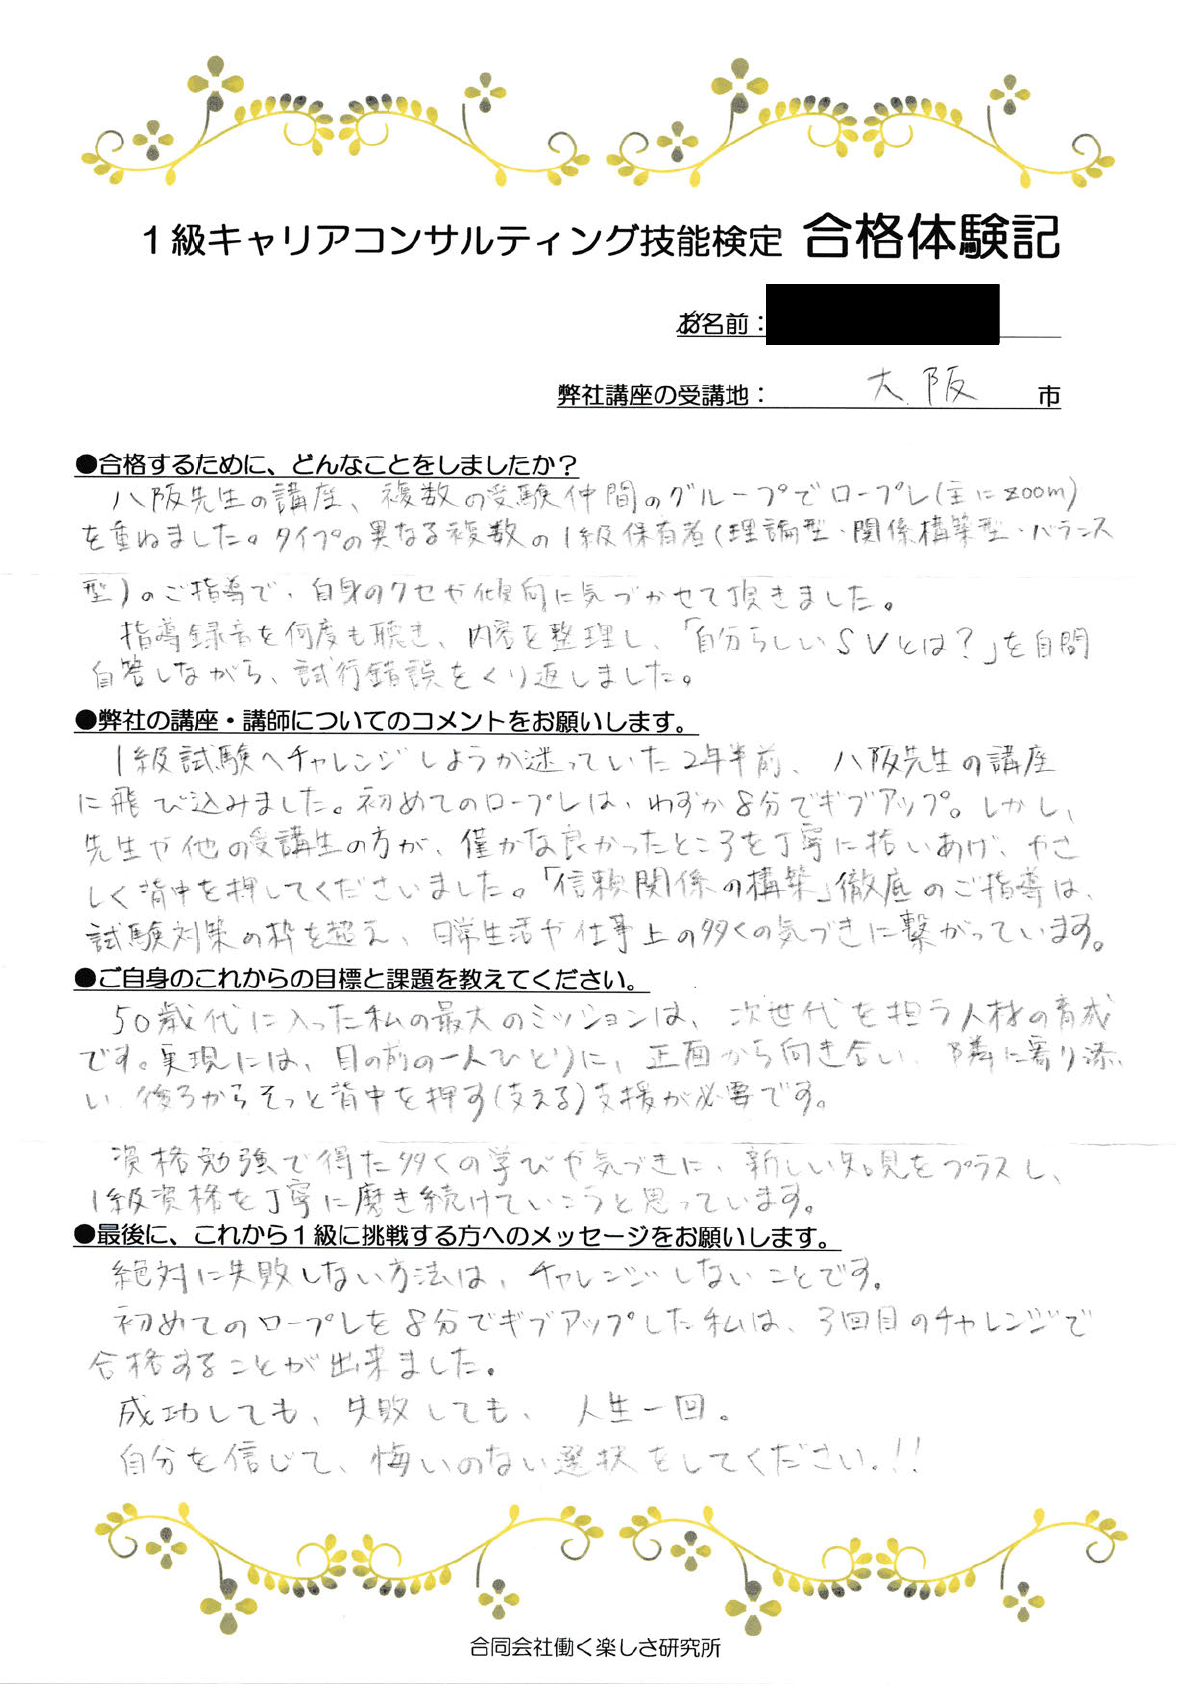 1級キャリアコンサルティング技能検定 合格体験記
お名前：
弊社講座の受講地： 大阪 市
●合格するために、どんなことをしましたか？
八阪先生の講座、複数の受験仲間のグループでロープレ(主にzoom)
を重ねました。タイプの異なる複数の1級保有者(理論型・関係構築型・バランス
型)のご指導で、自身のクセや傾向に気づかせて頂きました。
指導録音を何度も聴き、内容を整理し、「自分らしいSVとは？」を自問
自答しながら、試行錯誤をくり返しました。
●弊社の講座・講師についてのコメントをお願いします。
1級試験へチャレンジしようか迷っていた2年半前、八阪先生の講座
に飛び込みました。初めてのロープレは、わずか8分でギブアップ。しかし、
先生や他の受講生の方が、僅かな良かったところを丁寧に拾いあげ、やさ
しく背中を押してくださいました。「信頼関係の構築」徹底のご指導は、
試験対策の枠を超え、日常生活や仕事上の多くの気づきに繋がっています。
●ご自身のこれからの目標と課題を教えてください。
50歳代に入った私の最大のミッションは、次世代を担う人材の育成
です。実現には、目の前の一人ひとりに、正面から向き合い、隣に寄り添
い、後ろからそっと背中を押す(支える)支援が必要です。
資格勉強で得た多くの学びや気づきに、新しい知見をプラスし、
1級資格を丁寧に磨き続けていこうと思っています。
●最後に、これから1級に挑戦する方へのメッセージをお願いします。
絶対に失敗しない方法は、チャレンジしないことです。
初めてのロープレを8分でギブアップした私は、3回目のチャレンジで
合格することが出来ました。
成功しても、失敗しても、人生一回。
自分を信じて、悔いのない選択をしてください!!
合同会社働く楽しさ研究所